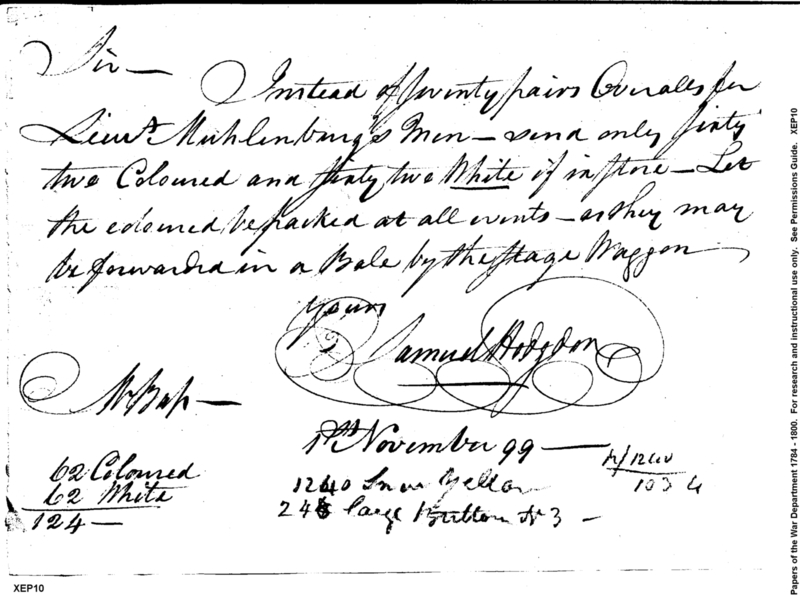 Sir—
Instead of seventy pairs Overalls for
Lieut. Muhlenburg's Men — send only sixty
two Coloured and sixty two White if in store — Let
the coloured be packed at all events — as they may
be forwarded in a Bale by the stage Waggon
Yours
Samuel Hodgdon
Mr Bap—
1st November 99—
62 Coloured
62 White
124—
1240 Yellow
248 large Buttons N 3 —
12/1240
103 4
XEP10
Papers of the War Department 1784 - 1800. For research and instructional use only. See Permissions Guide. XEP10